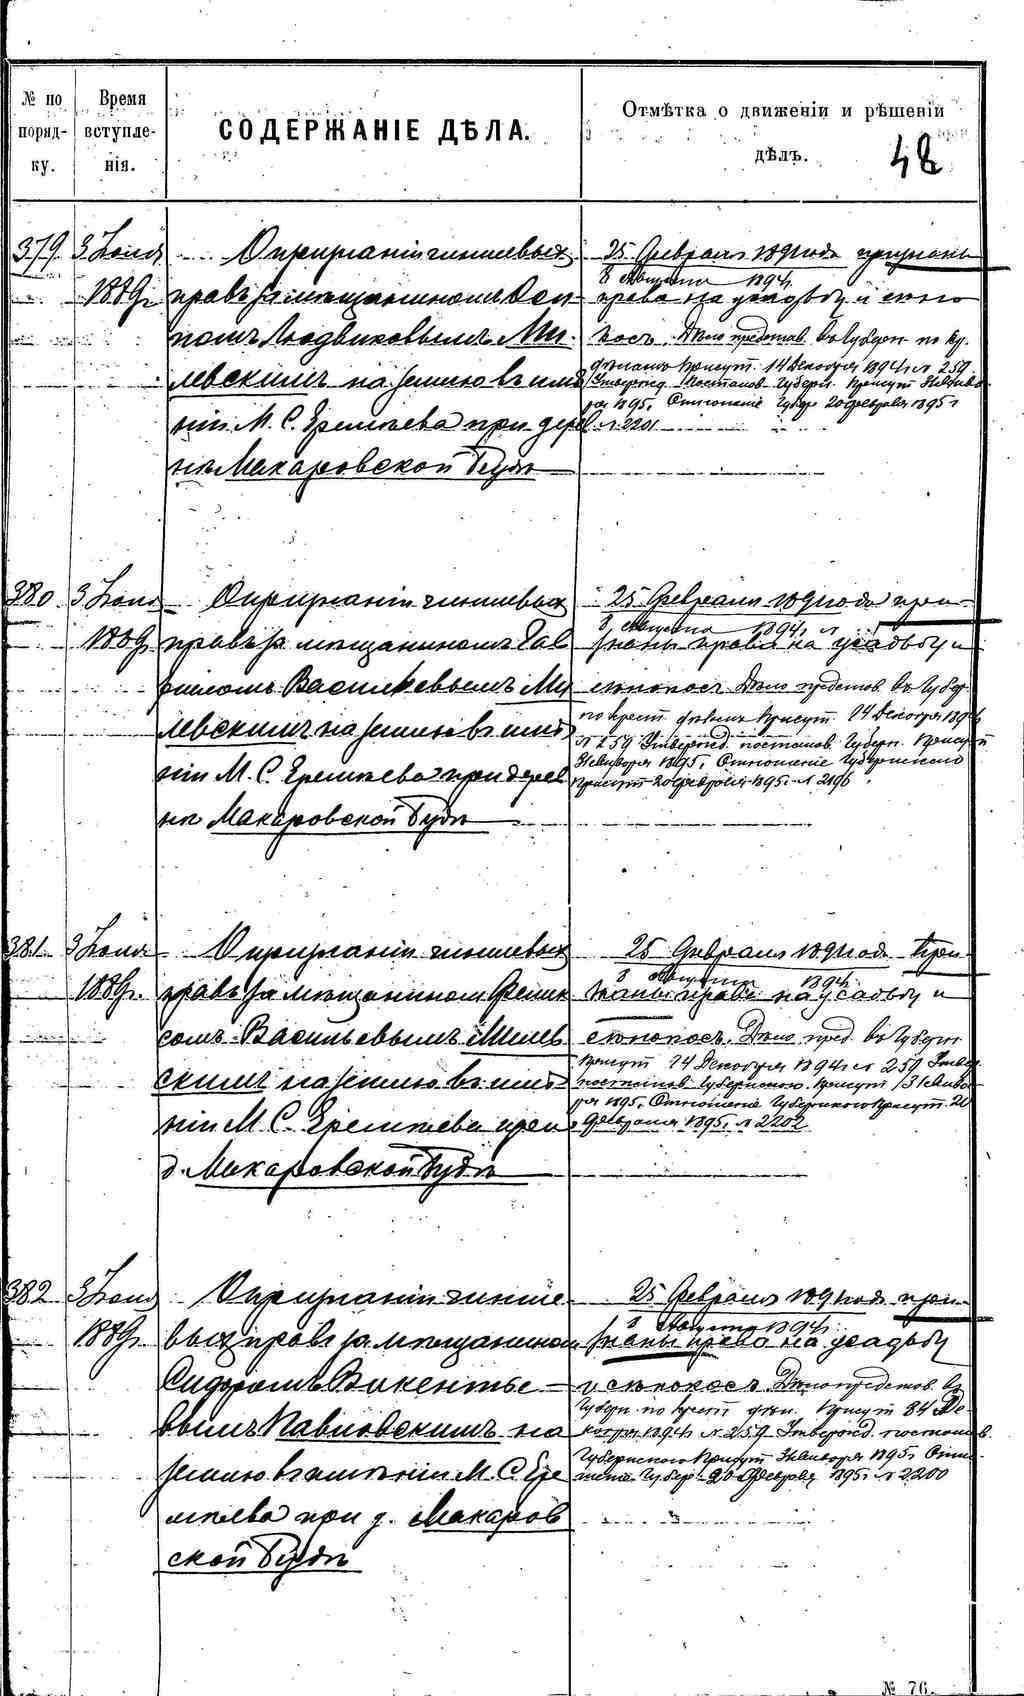 № по поряд-ку.
Время вступле-нія.
СОДЕРЖАНІЕ ДѢЛА.
Отмѣтка о движеніи и рѣшеніи дѣлъ.
48
379
3 Іюня
1889г
О признаніи чиншевыхъ
правъ за мѣщаниномъ Оси
помъ Людвиковымъ Ми-
левскимъ на землю въ имѣ
ніи М. С. Еремѣева при дерев
нѣ Макаровской Будѣ
25 Февраля 1891 года признаны
8 Августа 1894г
права на усадьбу и сѣно
косъ. Дѣло представ. въ Губерн. по кр.
дѣламъ Присут. 14 Декабря 1894г № 259
Утвержд. Постанов. Губерн. Присут 31 Янва
ря 1895г Отношеніе Губер 20 февраля 1895г
№ 2201
380
3 Іюня
1889г
О признаніи чиншевыхъ
правъ за мѣщаниномъ
Васильевымъ Ми
левскимъ на землю въ имѣ
ніи М. С. Еремѣева при дерев
нѣ Макаровской Будѣ
25 Февраля 1891 года при-
8 Августа 1894г №
знаны права на усадьбу и
сѣнокосъ Дѣло представ. въ Губер.
по крест. дѣламъ Присут. 14 Декабря 1894
№ 259 Утвержд. постанов. Губерн. Присут
31 Января 1895г Отношеніе Губернскаго
Присут 20 Февраля 1895г № 2196
381
3 Іюня
1889г.
О признаніи чиншевыхъ
правъ за мѣщаниномъ Фелик
сомъ Васильевымъ Милев
скимъ на землю въ имѣ
ніи М. С. Еремѣева при
д. Макаровской Будѣ
25 Февраля 1891 года При-
8 Августа 1894г
знаны права на усадьбу и
сѣнокосъ. Дѣло пред. въ Губерн
Присут 14 Декабря 1894г № 259 Утвер
постанов. Губернского Присут 31 Янва
ря 1895г Отношеніе Губернского Присут. 20
Февраля 1895г № 2202
382
3 Іюня
1889г.
О признаніи чинше-
выхъ правъ за мѣщаниномъ
Сидоромъ Викентье-
вымъ Павловскимъ на
землю въ имѣніи М. С. Ере
мѣева при д. Макаров
ской Будѣ
25 Февраля 1891 года при-
8 Августа 1894г
знаны права на усадьбу
и сѣнокосъ Дѣло представ. въ
Губерн. по крест. дѣл. Присут 14 Де-
кабря 1894г № 259 Утвержд. постанов.
Губернского Присут 31 Января 1895г Отно
шеніе Губер 20 Февраля 1895г № 2200
№ 76.